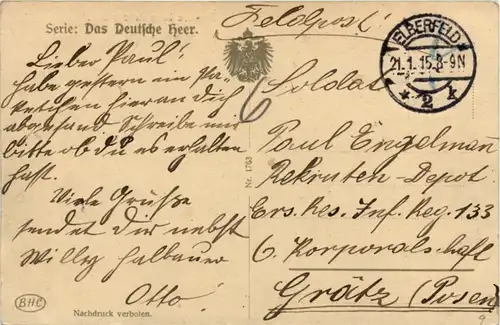 Serie: Das Deutsche Heer.
Feldpost!
ELBERFELD
21.1.15.8-9N
* 2 k
Lieber Paul!
habe gestern ein Pa-
ketchen hier an dich
abgesand Schreibe mir
bitte ob du es erhalten
hast.
Viele Grüße
sendet dir nebst
Willy Halbauer
Otto!
6
Soldat
Paul Engelmann
Rekruten-Depot
Ers. Res. Inf. Reg. 133
6. Korporalschaft
Grätz (Posen)
Nr. 1763
BHC
Nachdruck verboten.
9